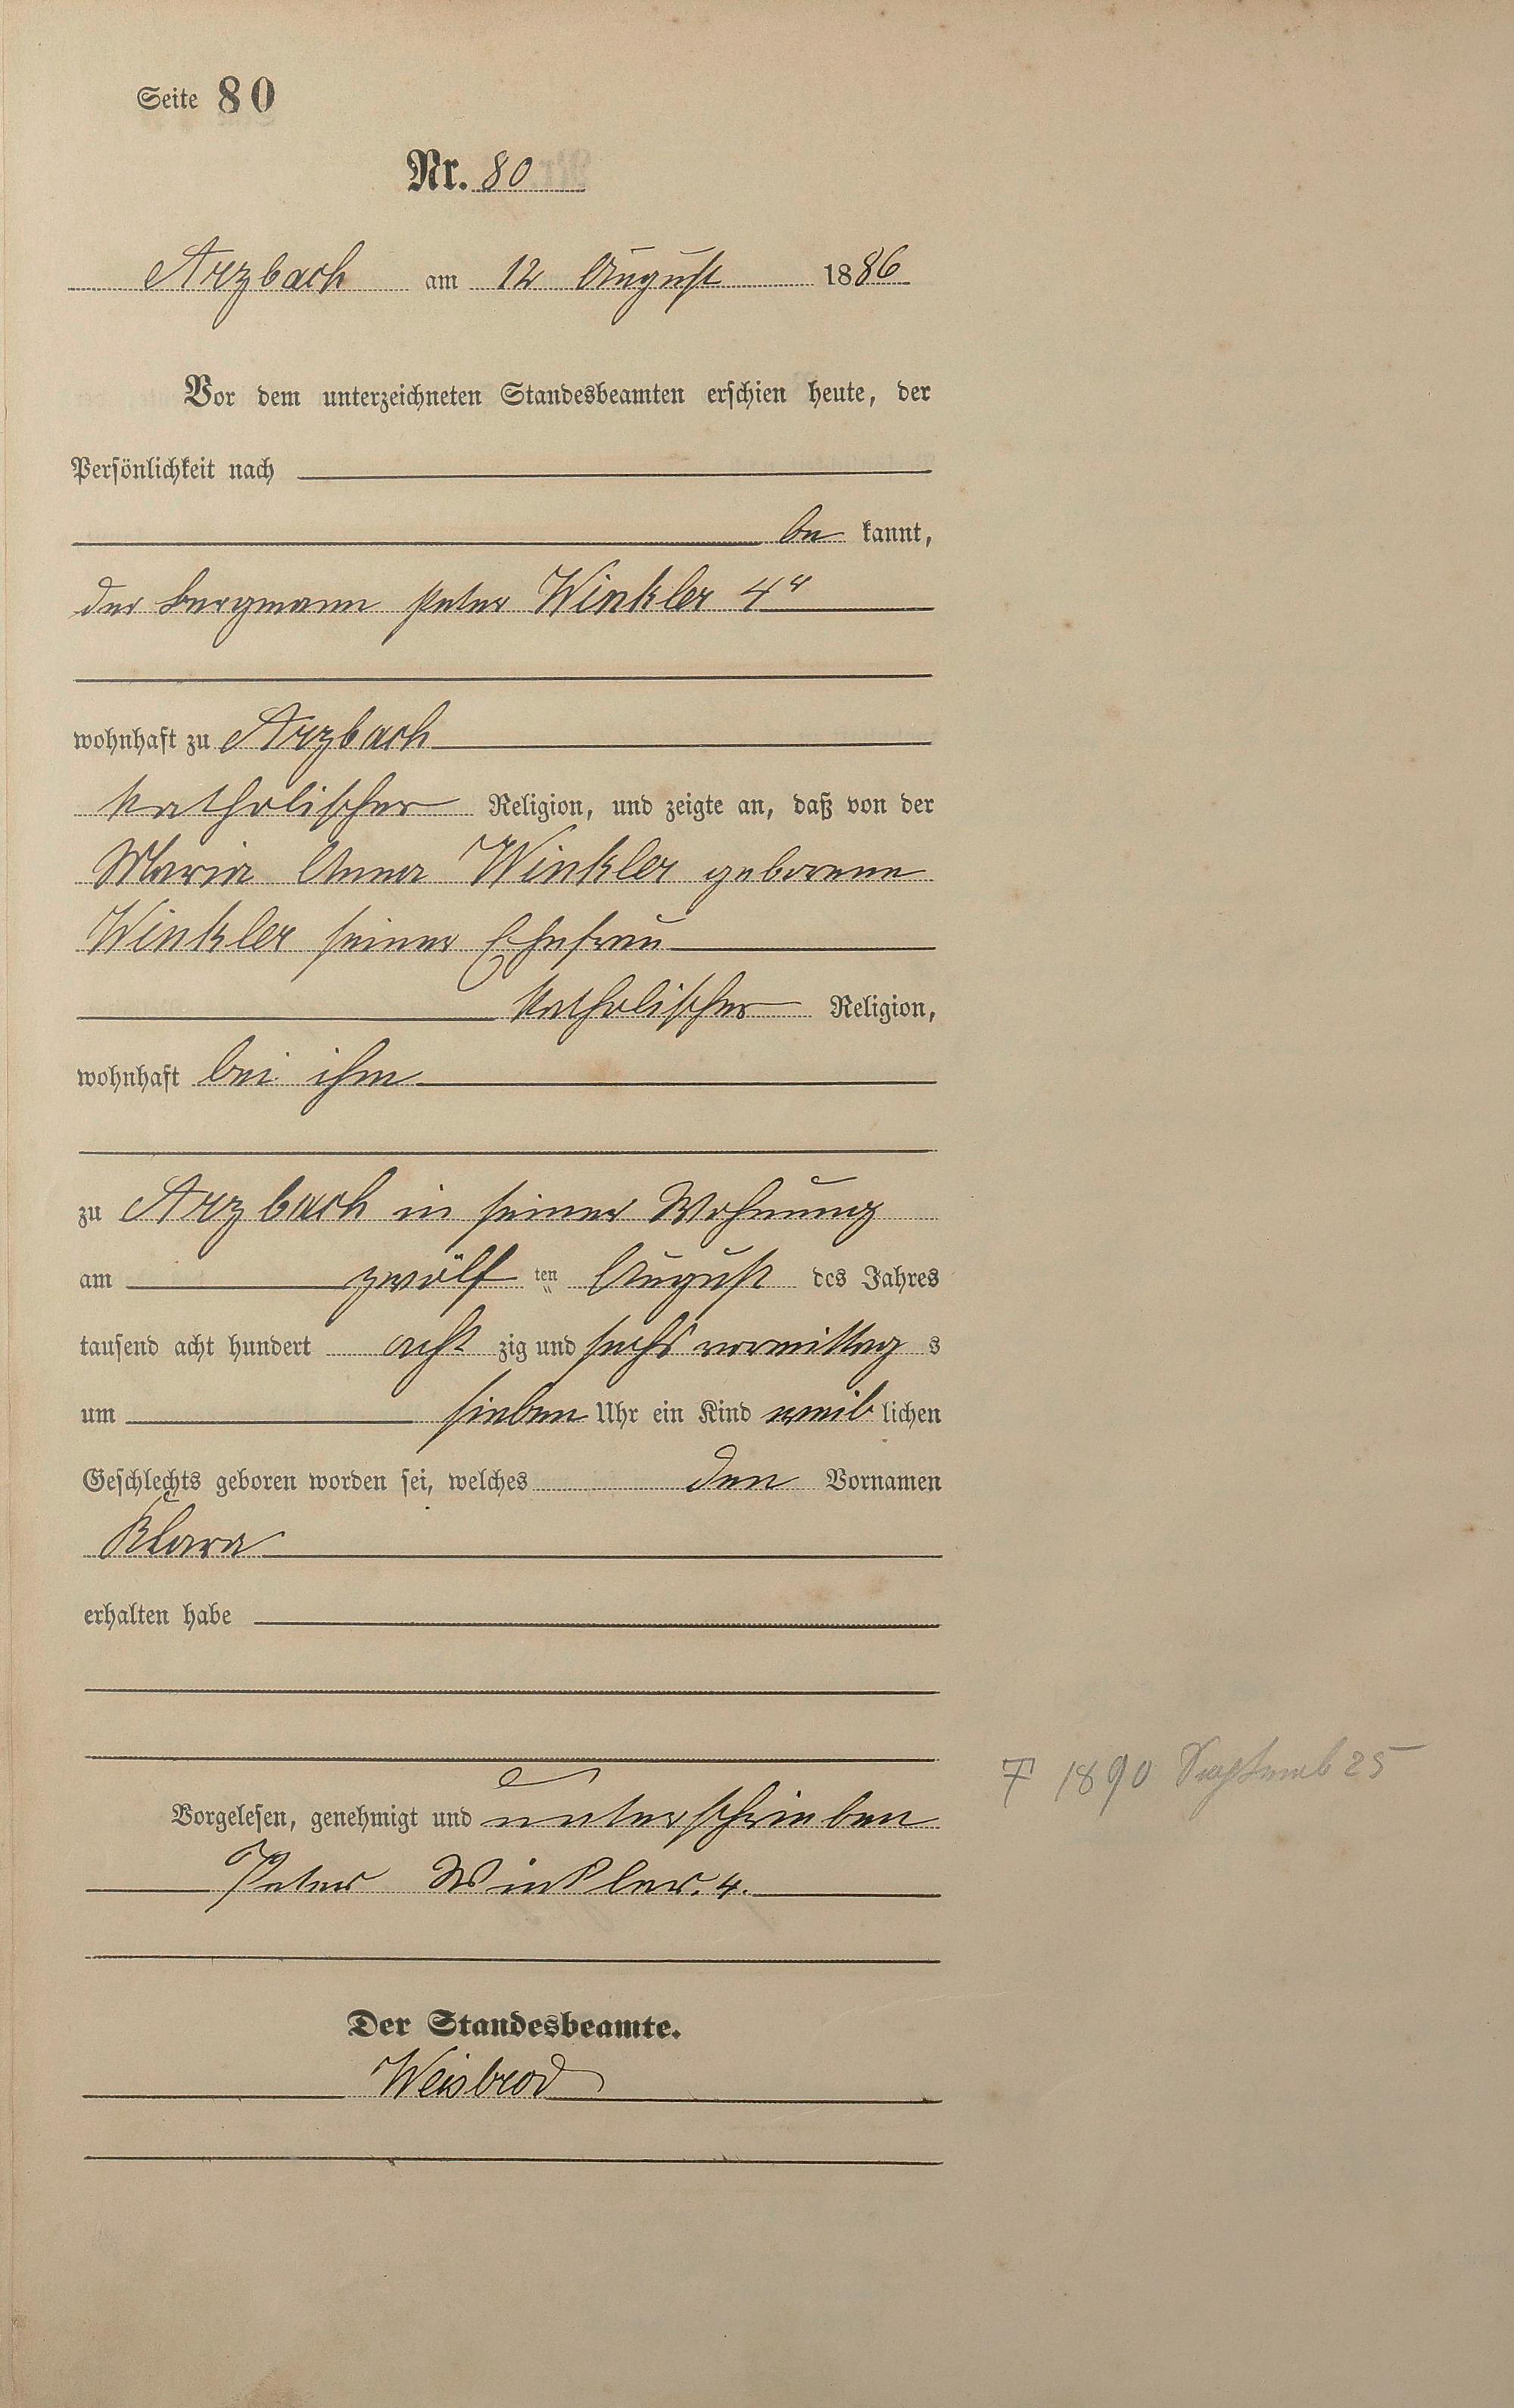 Seite 80
Nr. 80
Arzbach am 12 August 1886
Vor dem unterzeichneten Standesbeamten erschien heute, der
Persönlichkeit nach
be kannt,
der Bergmann Peter Winkler 4"
wohnhaft zu Arzbach
katholischer Religion, und zeigte an, daß von der
Maria Anna Winkler geborenen
Winkler seiner Ehefrau
katholischer Religion,
wohnhaft bei ihm
zu Arzbach in seiner Wohnung
am zwölf ten August des Jahres
tausend acht hundert acht zig und sechs vormittag s
um sieben Uhr ein Kind weib lichen
Geschlechts geboren worden sei, welches den Vornamen
Klara
erhalten habe
† 1890 Septemb 25
Vorgelesen, genehmigt und unterschrieben
Peter Winkler. 4.
Der Standesbeamte.
Weisbrod